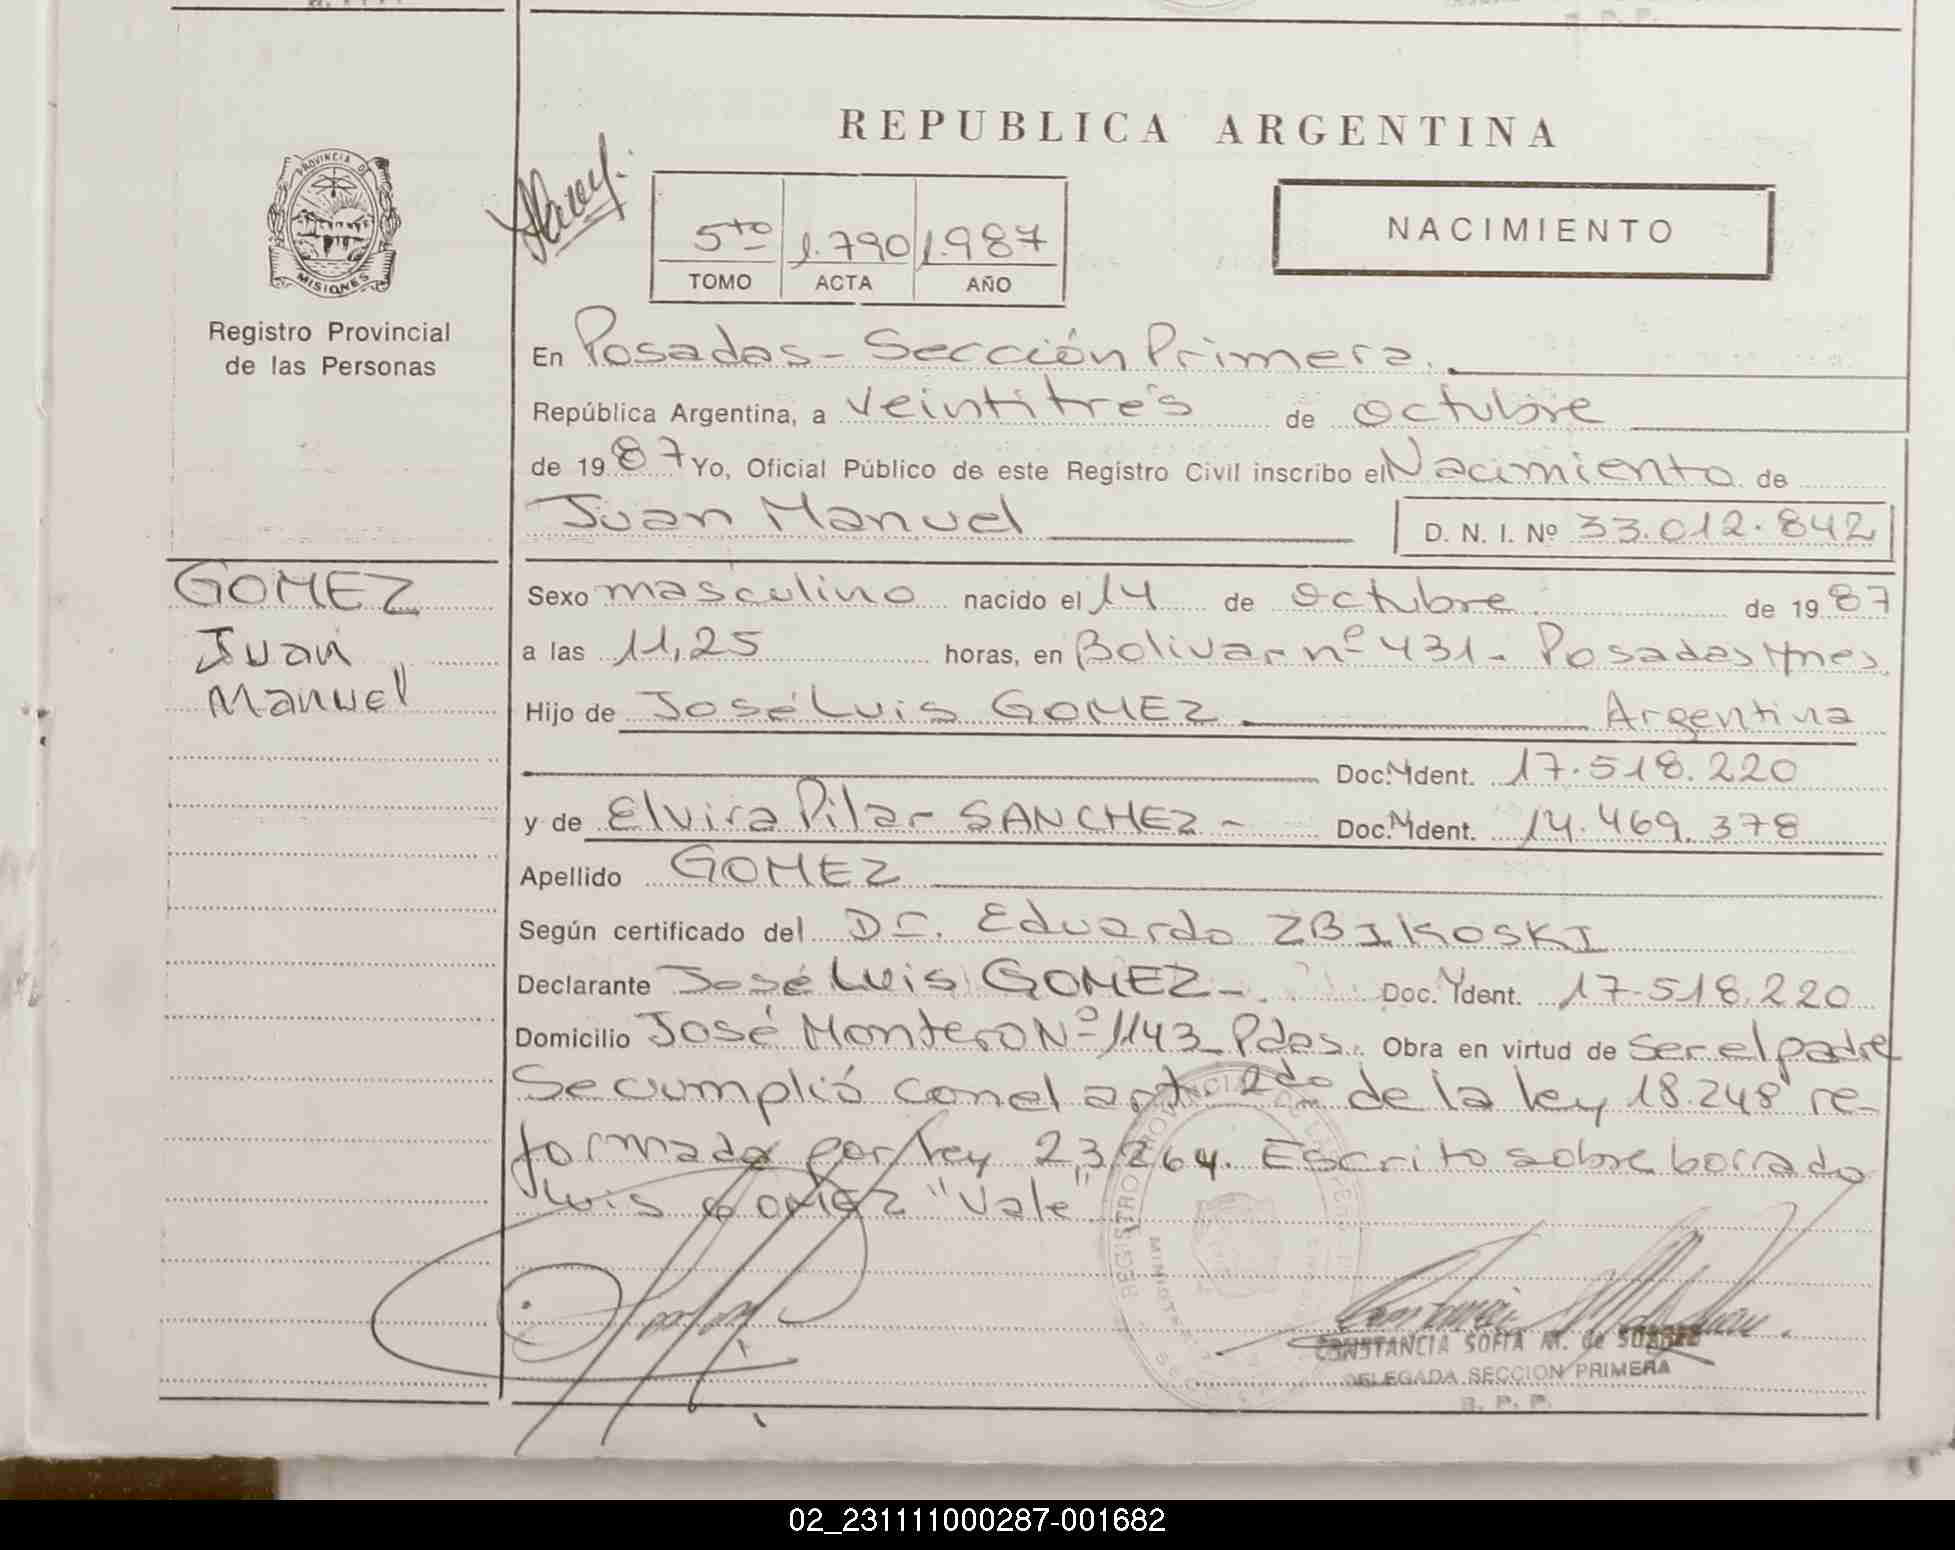 REPUBLICA ARGENTINA
PROVINCIA DE
MISIONES
Registro Provincial
de las Personas
5to 1.790 1.987
TOMO ACTA AÑO
NACIMIENTO
En Posadas - Sección Primera.
República Argentina, a veintitrés de octubre
de 1987 Yo, Oficial Público de este Registro Civil inscribo el Nacimiento de
Juan Manuel D. N. I. Nº 33.012.842
GOMEZ
Juan
Manuel
Sexo masculino nacido el 14 de octubre de 1987
a las 11,25 horas, en Bolivar nº 431 - Posadas Mnes.
Hijo de José Luis GOMEZ Argentina
Doc. Ident. 17.518.220
y de Elvira Pilar SANCHEZ - Doc. Ident. 14.469.378
Apellido GOMEZ
Según certificado del Dr. Eduardo ZBIKOSKI
Declarante José Luis GOMEZ - Doc. Ident. 17.518.220
Domicilio José Montero Nº 1143 - Pdas. Obra en virtud de ser el padre
Se cumplió con el art. 2do de la ley 18.248 re-
formada por ley 23.264. Escrito sobre borrado
Luis GOMEZ "Vale"
CONSTANCIA SOFIA M. de SUAREZ
DELEGADA SECCION PRIMERA
R. P. P.
02_231111000287-001682